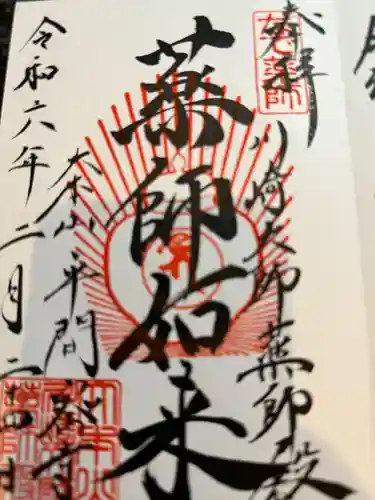 奉拝
川崎大師薬師殿
薬師如来
大本山平間寺
令和六年二月二